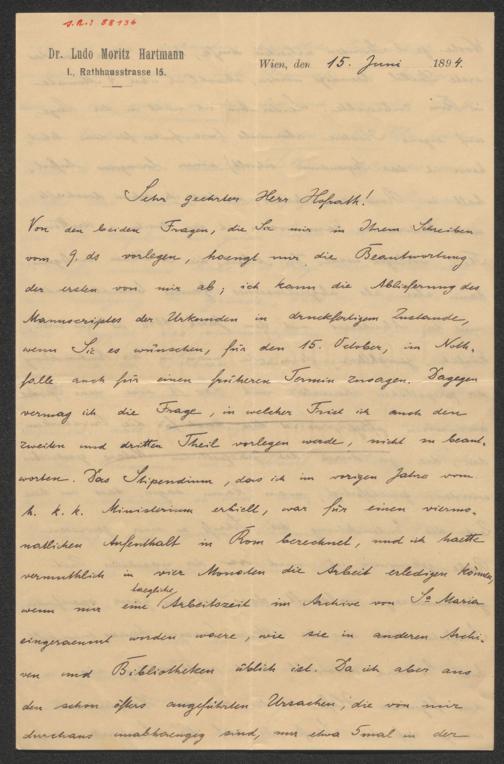 s.n.: 88134
Dr. Ludo Moritz Hartmann
I., Rathhausstrasse 15.
Wien, den 15. Juni 1894.
Sehr geehrter Herr Hofrath!
Von den beiden Fragen, die Sie mir in Ihrem Schreiben
vom 9. ds vorlegen, haengt nur die Beantwortung
der ersten von mir ab; ich kann die Ablieferung des
Manuscriptes der Urkunden in druckfertigem Zustande,
wenn Sie es wünschen, für den 15. October, im Noth-
falle auch für einen früheren Termin zusagen. Dagegen
vermag ich die Frage, in welcher Frist ich auch den
zweiten und dritten Theil vorlegen werde, nicht zu beant-
worten. Das Stipendium, das ich im vorigen Jahre vom
h. k. k. Ministerium erhielt, war für einen viermo-
natlichen Aufenthalt in Rom berechnet, und ich haette
vermuthlich in vier Monaten die Arbeit erledigen können,
wenn mir eine taegliche Arbeitszeit im Archive von Sa Maria
eingeraeumt worden waere, wie sie in anderen Archi-
ven und Bibliotheken üblich ist. Da ich aber aus
den schon öfters angeführten Ursachen, die von mir
durchaus unabhaengig sind, nur etwa 5mal in der